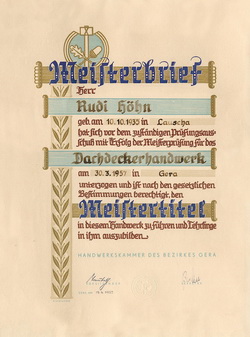 Meisterbrief
Herr
Rudi Höhn
geb. am 10.10.1935 in Lauscha
hat sich vor dem zuständigen Prüfungsaus-
schuß mit Erfolg der Meisterprüfung für das
Dachdeckerhandwerk
am 30.3.1957 in Gera
unterzogen und ist nach den gesetzlichen
Bestimmungen berechtigt, den
Meistertitel
in diesem Handwerk zu führen und Lehrlinge
in ihm auszubilden.
HANDWERKSKAMMER DES BEZIRKES GERA